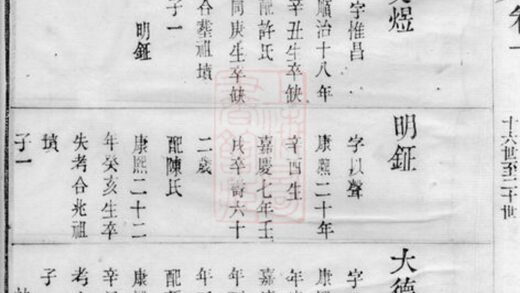 卷一
十六世至二十世
煜
字惟昌
順治十八年
辛丑生卒缺
配許氏
同庚生卒缺
合葬祖墳
子一
明鉦
明鉦
字以聲
康熙二十年
辛酉生
嘉慶七年壬
戌卒壽六十
二歲
配陳氏
康熙二十二
年癸亥生卒
失考合兆祖
墳
子一
大德
字
康
年
嘉
年
年
配
康
辛
考
子